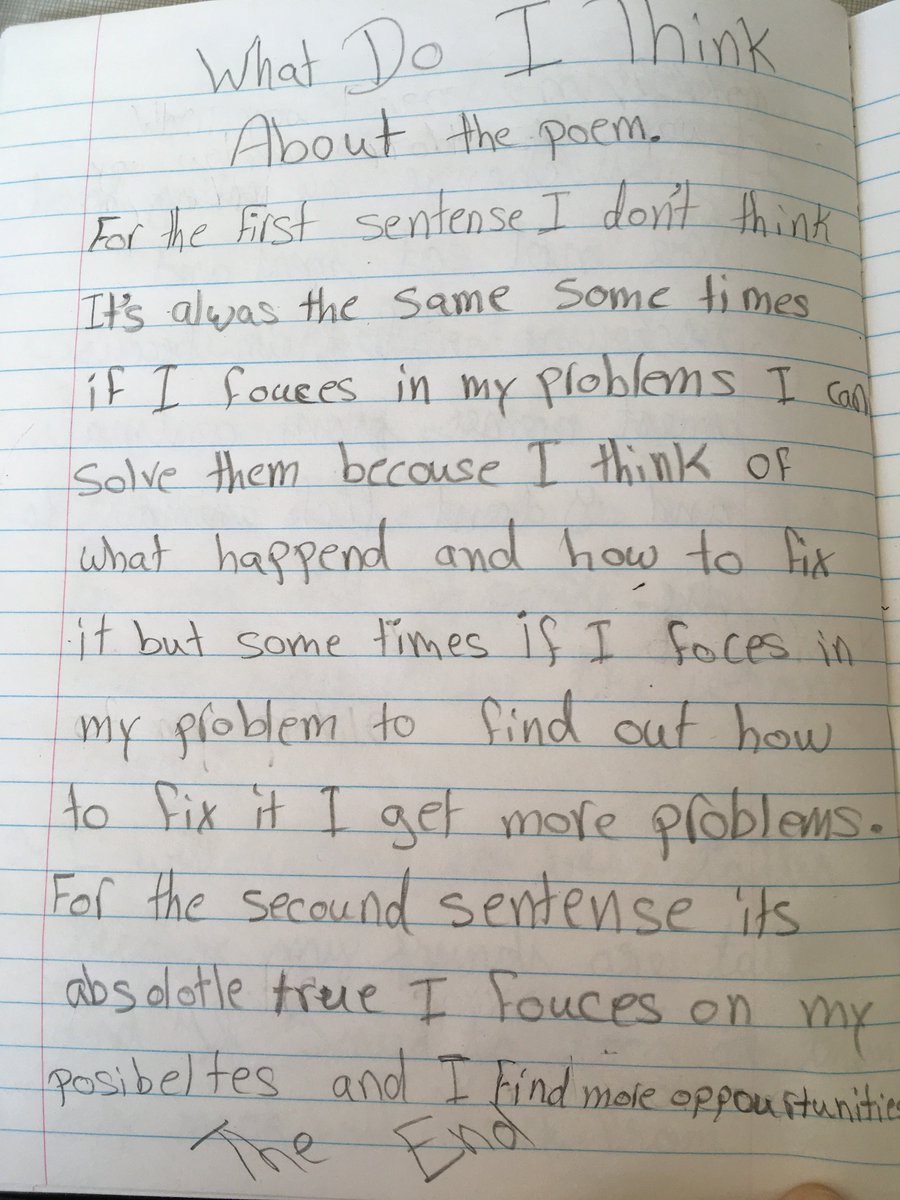 What Do I Think
About the poem.
For the First sentense I don't think
It's alwas the same some times
if I fouces in my problems I can
solve them becouse I think of
what happend and how to fix
it but some times if I foces in
my problem to find out how
to fix it I get more problems.
For the secound sentense its
absolotle true I fouces on my
posibeltes and I Find more oppourtunities
The End